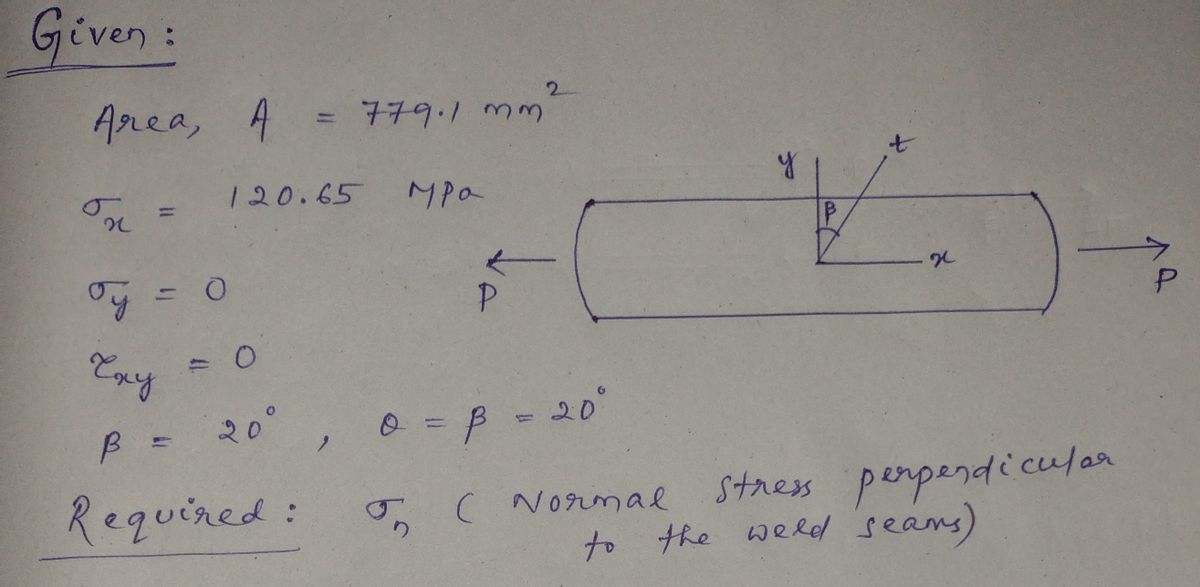 Given :
Area, A = 779.1 mm²
σx = 120.65 MPa
σy = 0
τxy = 0
β = 20° , θ = β = 20°
y
t
β
x
P
P
Required : σn ( Normal stress perpendicular
to the weld seams)